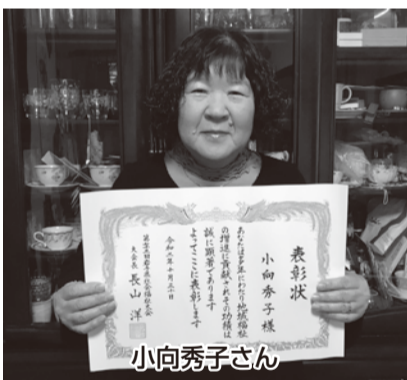 表彰状
小向秀子様
あなたは多年にわたり地域福祉
の増進に貢献されその功績は
誠に顕著であります
よってここに表彰します
令和三年十月三十日
大会長 長山 洋
小向秀子さん